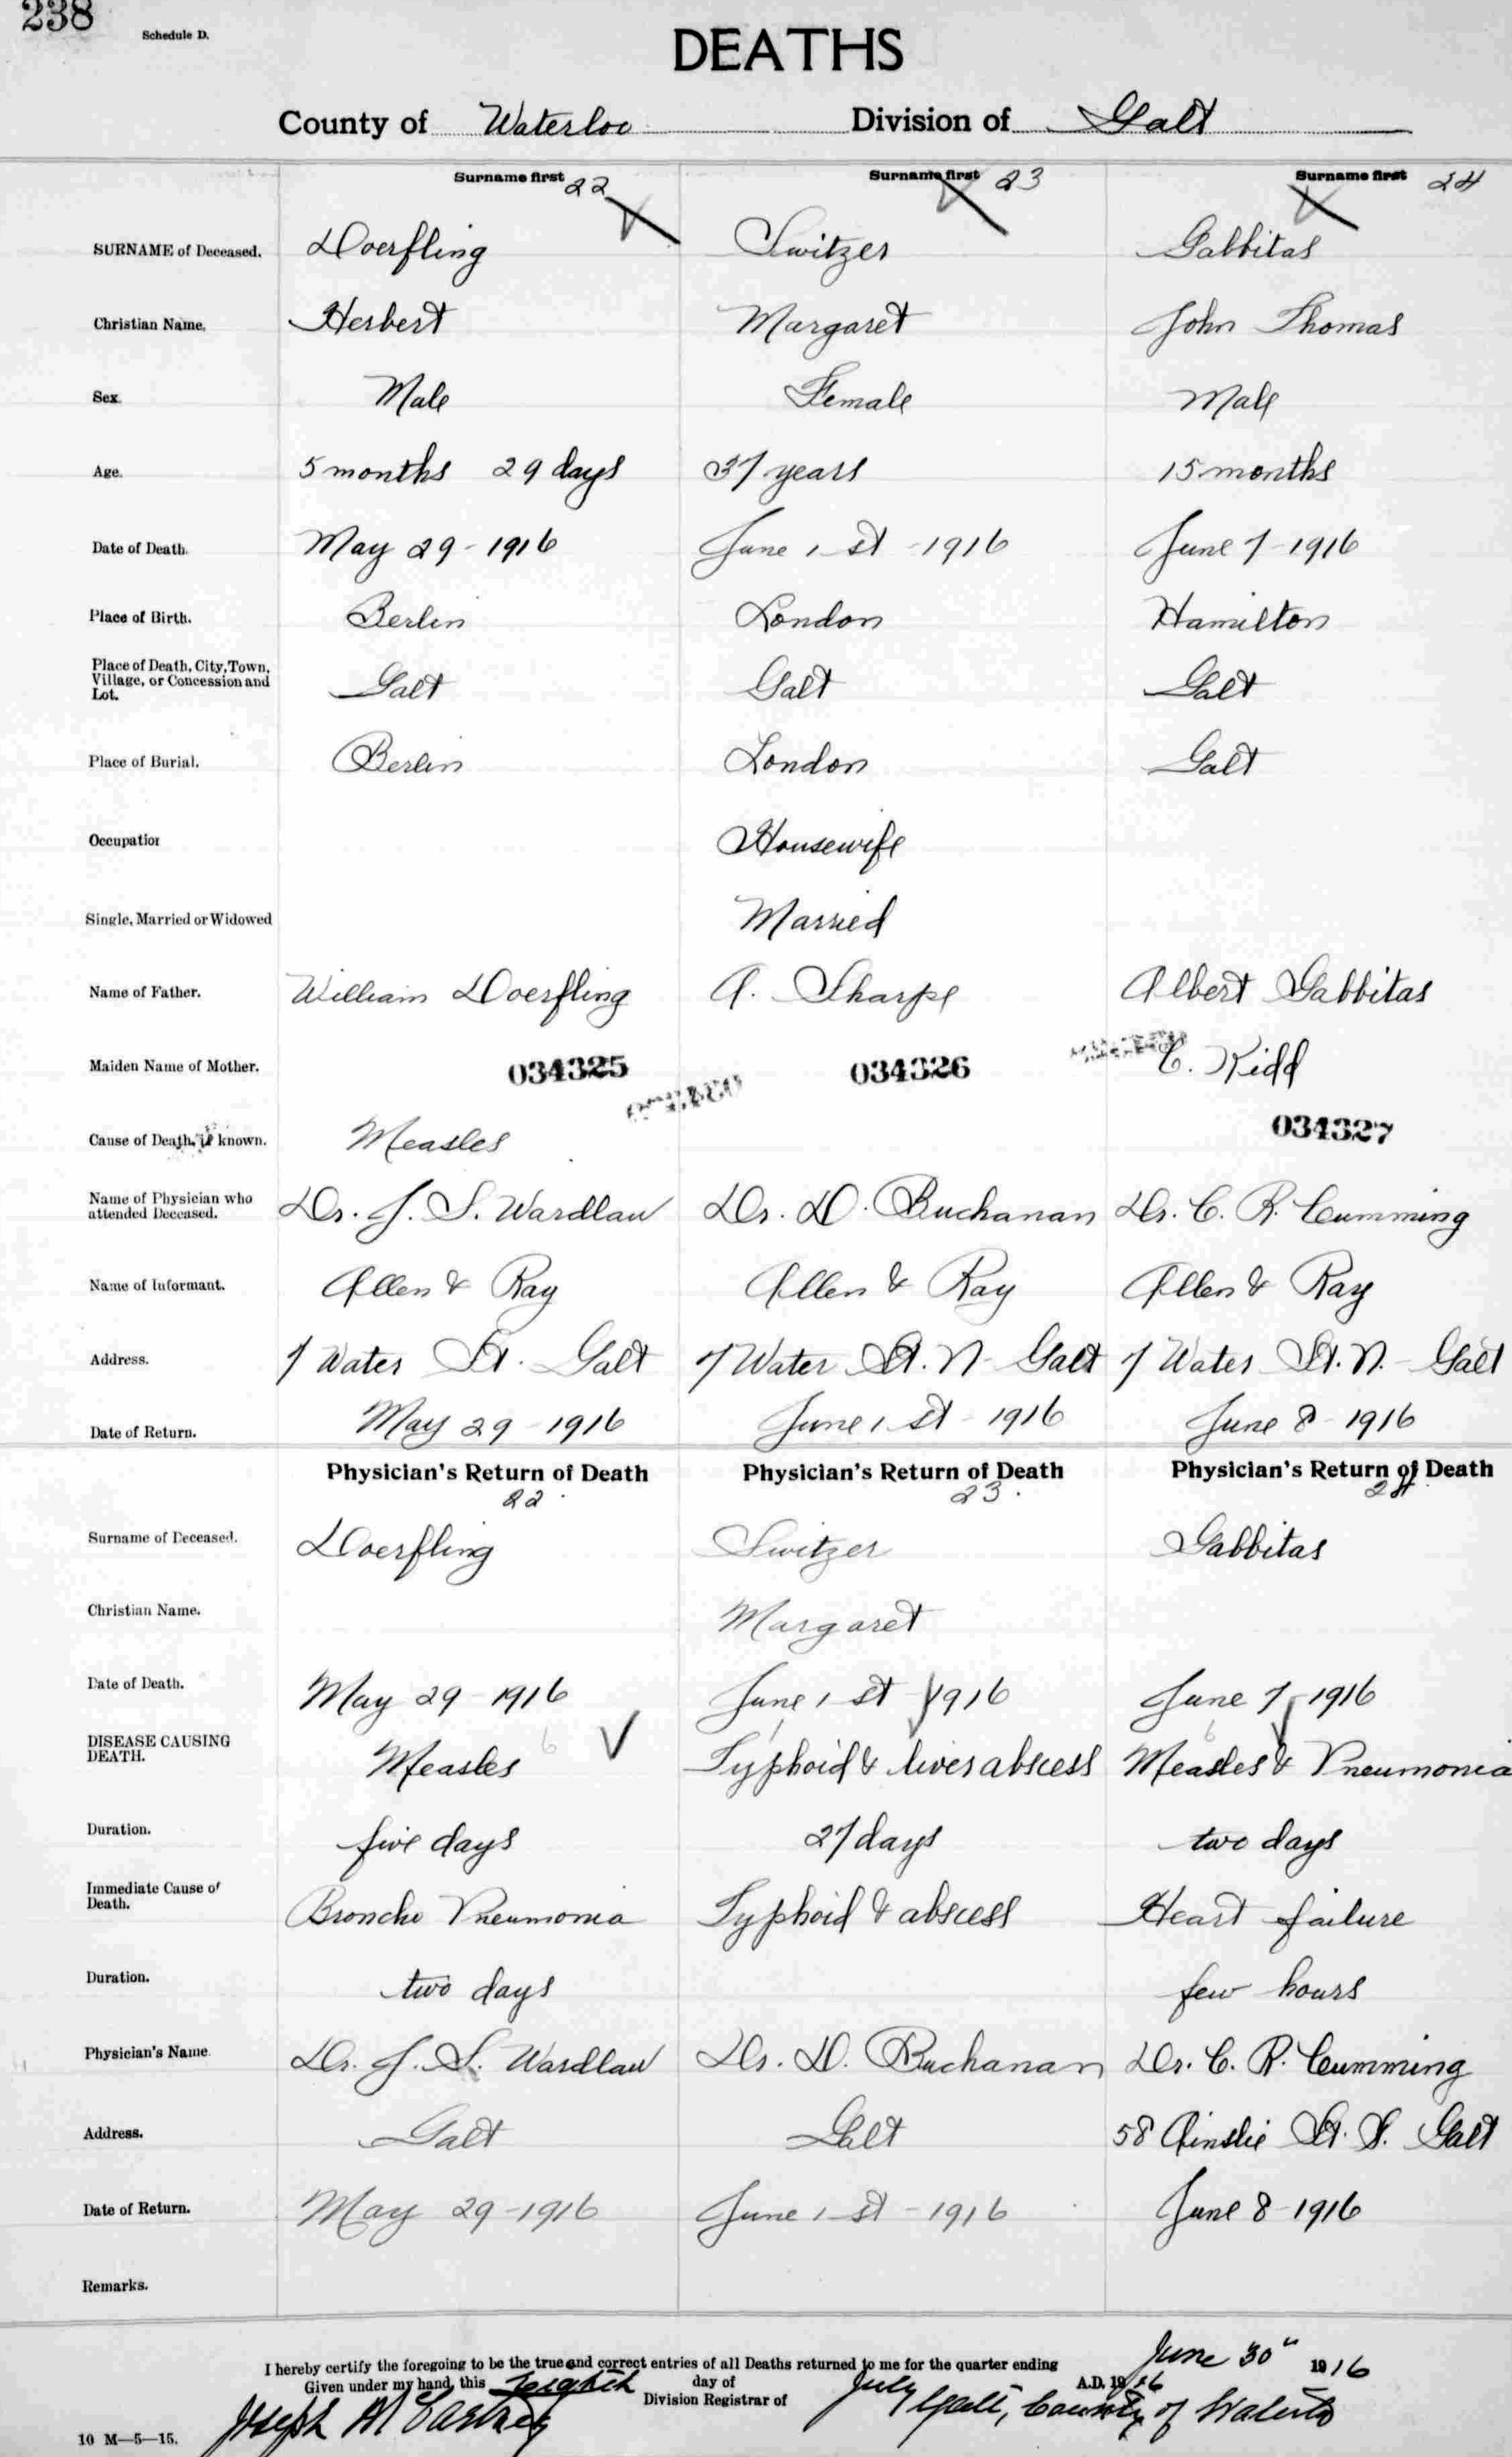 238
Schedule D.
DEATHS
County of Waterloo Division of Galt
Surname first 22 Surname first 23 Surname first 24
SURNAME of Deceased. Doerfling Switzer Gabbitas
Christian Name. Herbert Margaret John Thomas
Sex. Male Female Male
Age. 5 months 29 days 37 years 15 months
Date of Death. May 29 - 1916 June 1 st - 1916 June 7 - 1916
Place of Birth. Berlin London Hamilton
Place of Death, City, Town,
Village, or Concession and
Lot. Galt Galt Galt
Place of Burial. Berlin London Galt
Occupation Housewife
Single, Married or Widowed Married
Name of Father. William Doerfling A. Sharpe Albert Gabbitas
Maiden Name of Mother. 034325 034326 C. Kidd
Cause of Death, if known. Measles 034327
Name of Physician who
attended Deceased. Dr. J. S. Wardlaw Dr. D. Buchanan Dr. C. R. Cumming
Name of Informant. Allen & Ray Allen & Ray Allen & Ray
Address. 7 Water St. Galt 7 Water St. N - Galt 7 Water St. N. - Galt
Date of Return. May 29 - 1916 June 1 st - 1916 June 8 - 1916
Physician's Return of Death Physician's Return of Death Physician's Return of Death
22 23 24
Surname of Deceased. Doerfling Switzer Gabbitas
Christian Name. Margaret
Date of Death. May 29 - 1916 June 1 st 1916 June 7 - 1916
DISEASE CAUSING
DEATH. Measles 6 Typhoid & liver abscess Measles & Pneumonia 6
Duration. five days 27 days two days
Immediate Cause of
Death. Broncho Pneumonia Typhoid & abscess Heart failure
Duration. two days few hours
Physician's Name Dr. J. S. Wardlaw Dr. D. Buchanan Dr. C. R. Cumming
Address. Galt Galt 58 Ainslie St. S. Galt
Date of Return. May 29 - 1916 June 1 st - 1916 June 8 - 1916
Remarks.
I hereby certify the foregoing to be the true and correct entries of all Deaths returned to me for the quarter ending June 30th 1916
Given under my hand, this day of July A.D. 1916
Joseph Division Registrar of Galt, County of Waterloo
10 M—5—15.